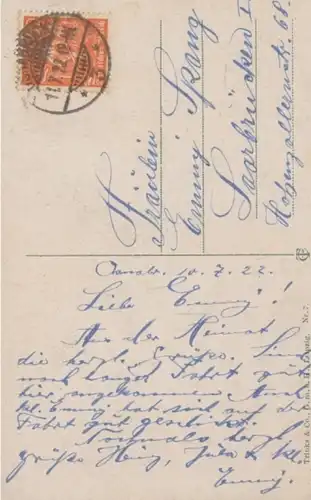 Fräulein
Emmy Spang
Saarbrücken I
Hohenzollernstr 68.
10.7.22.
Liebe Emmy!
Aus der Heimat
die herzl. Grüße. Sind
nach langer Fahrt gut
hier angekommen. Auch
kl. Emmy hat sich auf der
Fahrt gut
Nochmals herzl.
grüße Heinz, Jula & kl
Emmy.
Trinks & Co., G.m.b.H. Leipzig. Nr. 7.